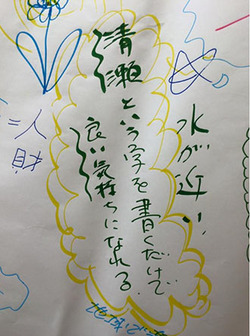 水が近い!
清瀬という字を書くだけで
良い気持ちになれる。
人財